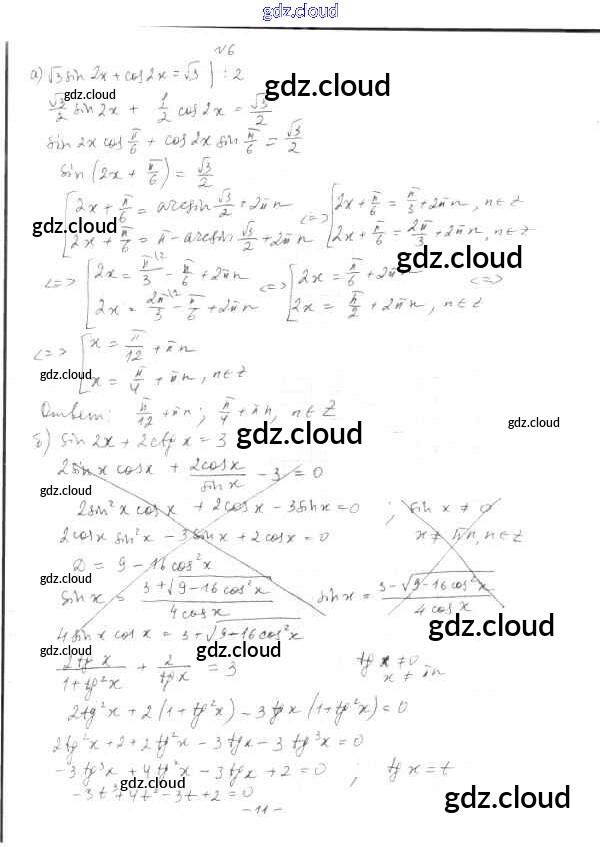 gdz.cloud
√6
а) √3 sin 2x + cos 2x = √3 | : 2
gdz.cloud
√3/2 sin 2x + 1/2 cos 2x = √3/2
gdz.cloud
sin 2x cos π/6 + cos 2x sin π/6 = √3/2
sin (2x + π/6) = √3/2
[2x + π/6 = arcsin √3/2 + 2πn <=> [2x + π/6 = π/3 + 2πn, n∈Z
gdz.cloud
2x + π/6 = π - arcsin √3/2 + 2πn 2x + π/6 = 2π/3 + 2πn, n∈Z
gdz.cloud
<=> [2x = π/3 \2 - π/6 + 2πn <=> [2x = π/6 + 2πn <=>
2x = 2π/3 \2 - π/6 + 2πn 2x = π/2 + 2πn, n∈Z
<=> [x = π/12 + πn
gdz.cloud
x = π/4 + πn, n∈Z
Ответ: π/12 + πn; π/4 + πn, n∈Z
gdz.cloud
gdz.cloud
gdz.cloud
б) sin 2x + 2ctg x = 3
2 sin x cos x + 2cos x/sin x - 3 = 0
gdz.cloud
2sin²x cos x + 2cos x - 3sin x = 0 ; sin x ≠ 0
gdz.cloud
gdz.cloud
2cos x sin²x - 3 sin x + 2 cos x = 0 x ≠ πn, n∈Z
D = 9 - 16 cos²x
gdz.cloud
sin x = 3 + √9 - 16 cos²x/4 cos x sin x = 3 - √9 - 16 cos²x/4 cos x
gdz.cloud
4 sin x cos x = 3 + √9 - 16 cos²x
gdz.cloud
2 tg x/1 + tg²x + 2/tg x = 3 tg x ≠ 0
x ≠ πn
gdz.cloud
2tg²x + 2(1 + tg²x) - 3 tg x (1 + tg²x) = 0
2tg²x + 2 + 2tg²x - 3tg x - 3 tg³x = 0
-3 tg³x + 4tg²x - 3tg x + 2 = 0 ; tg x = t
gdz.cloud
-3t³ + 4t² - 3t + 2 = 0
gdz.cloud
- 11 -